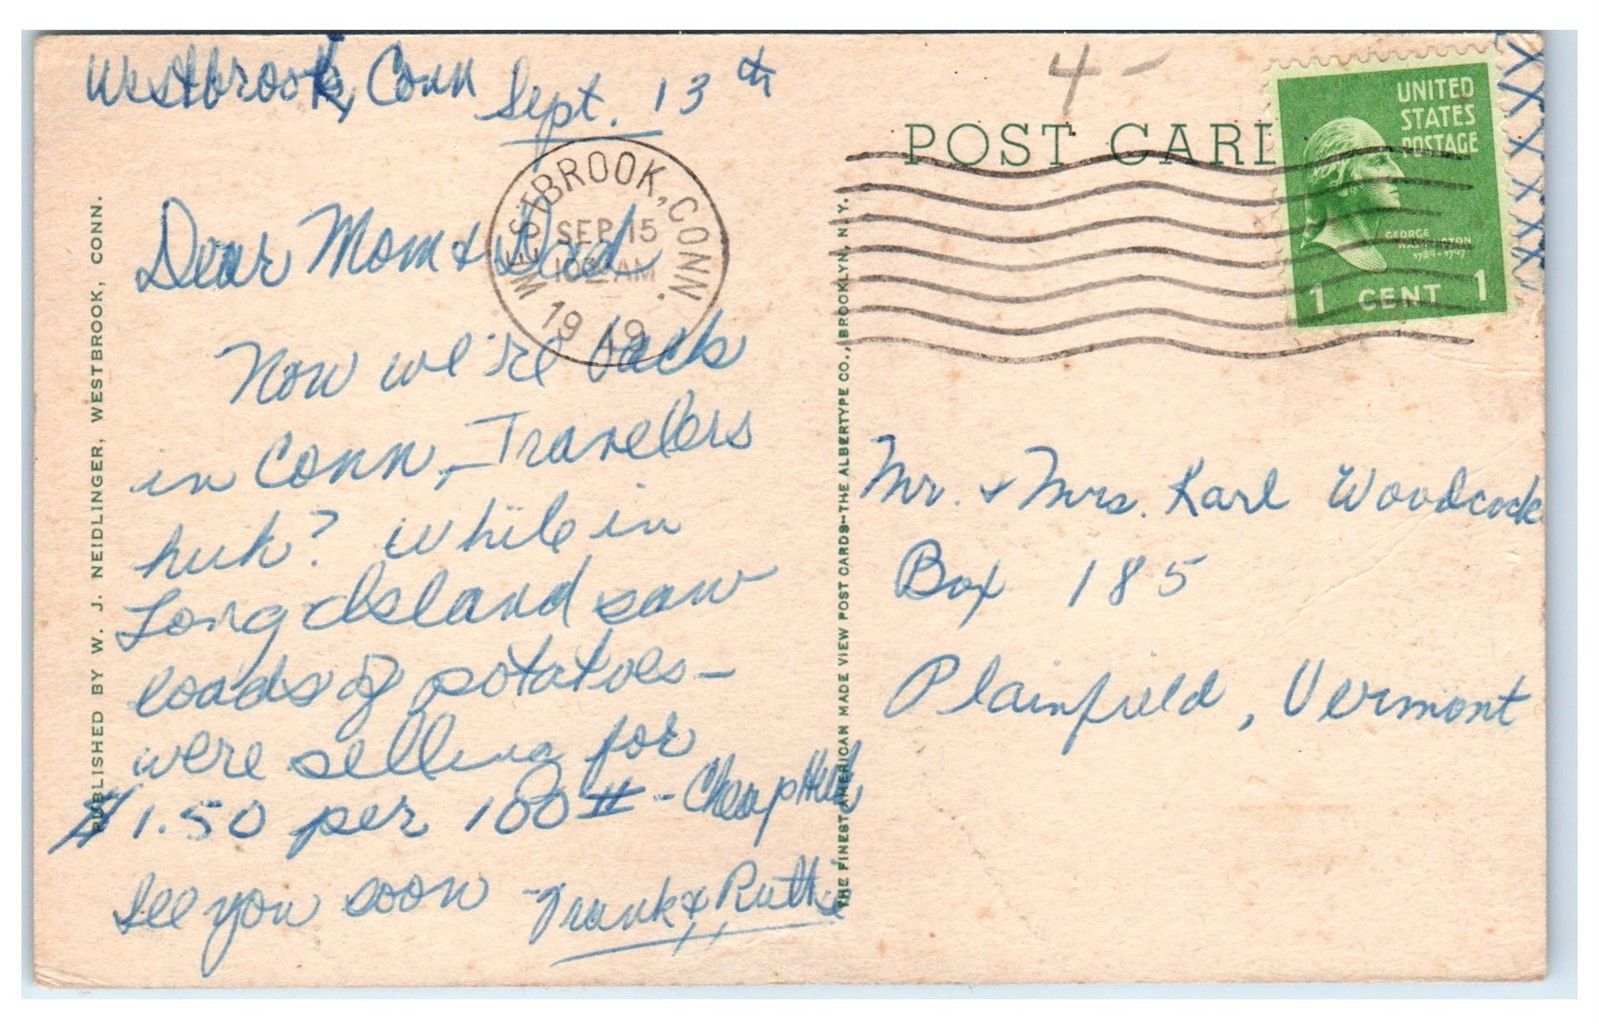 Westbrook, Conn Sept. 13th
4-
POST CARD
UNITED
STATES
POSTAGE
GEORGE
WASHINGTON
1789-1797
1 CENT 1
WESTBROOK, CONN.
SEP 15
AM
1949
Dear Mom & Dad
Now we're back
in Conn, - Travelers
huh? While in
Long Island saw
loads of potatoes -
were selling for
$1.50 per 100# - Cheap Huh
See you soon
Frank & Ruth
Mr. & Mrs. Karl Woodcock
Box 185
Plainfield, Vermont
PUBLISHED BY W. J. NEIDLINGER, WESTBROOK, CONN.
THE FINEST AMERICAN MADE VIEW POST CARDS—THE ALBERTYPE CO., BROOKLYN, N. Y.